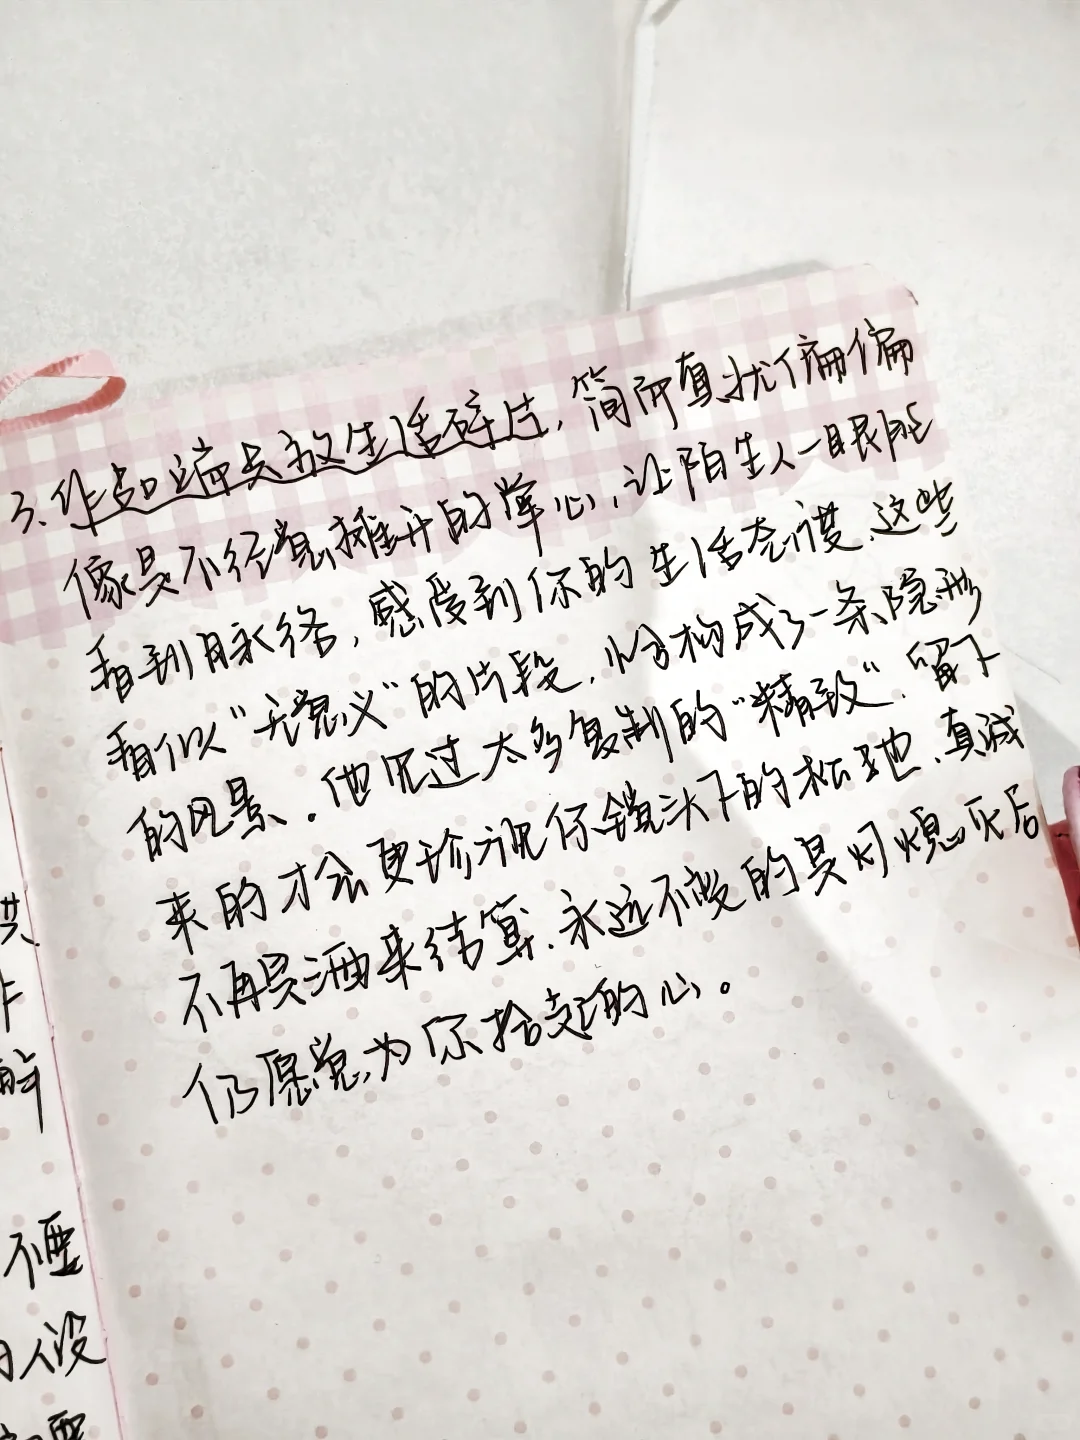 3、作品适当放生活碎片，简而真状偏偏
像是不经意摊开的掌心，让陌生人一眼能
看到脉络，感受到你的生活态度、这些
看似“无意义”的片段，恰构成了一条隐形
的风景。他见过太多复制的“精致”，留下
来的才会更珍视你镜头下的松弛、真诚
不再是洒来结算，永远不变的是灯熄灭后
仍愿意为你拾起的心。
共
解
不要
人设
要